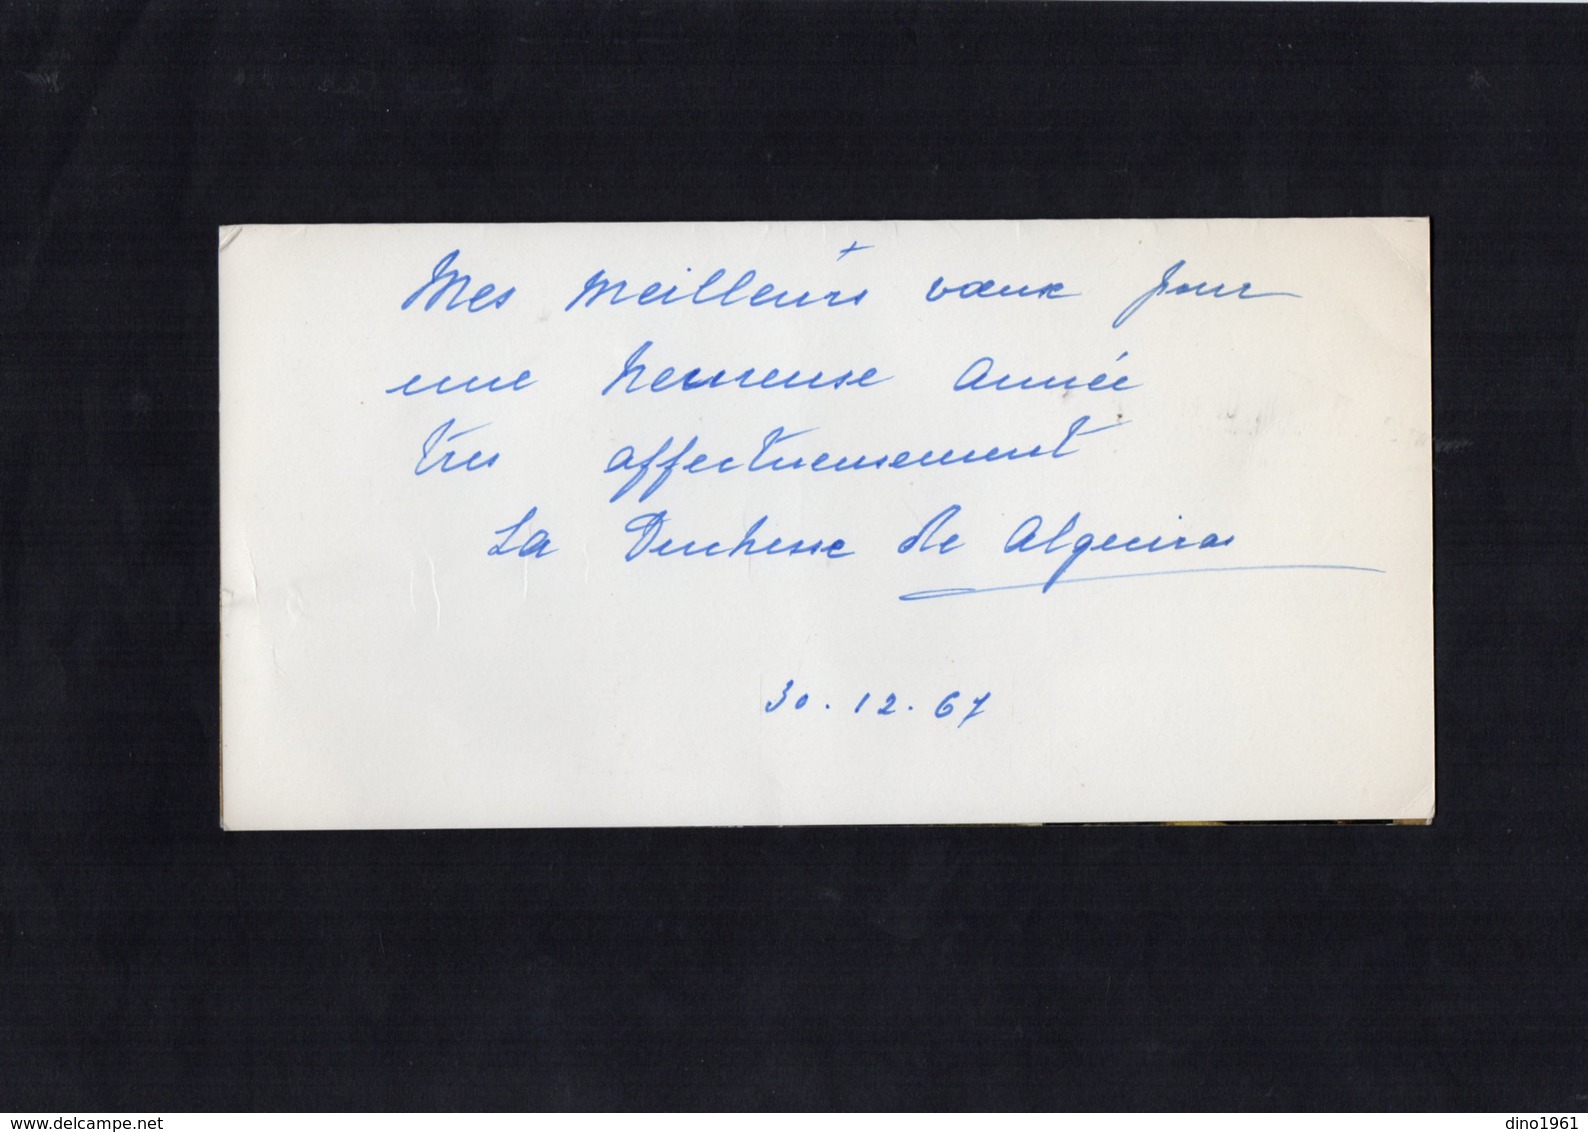 Mes meilleurs vœux pour
une heureuse année
très affectueusement
La Duchesse de Algeciras
30.12.67
www.delcampe.net
dino1961